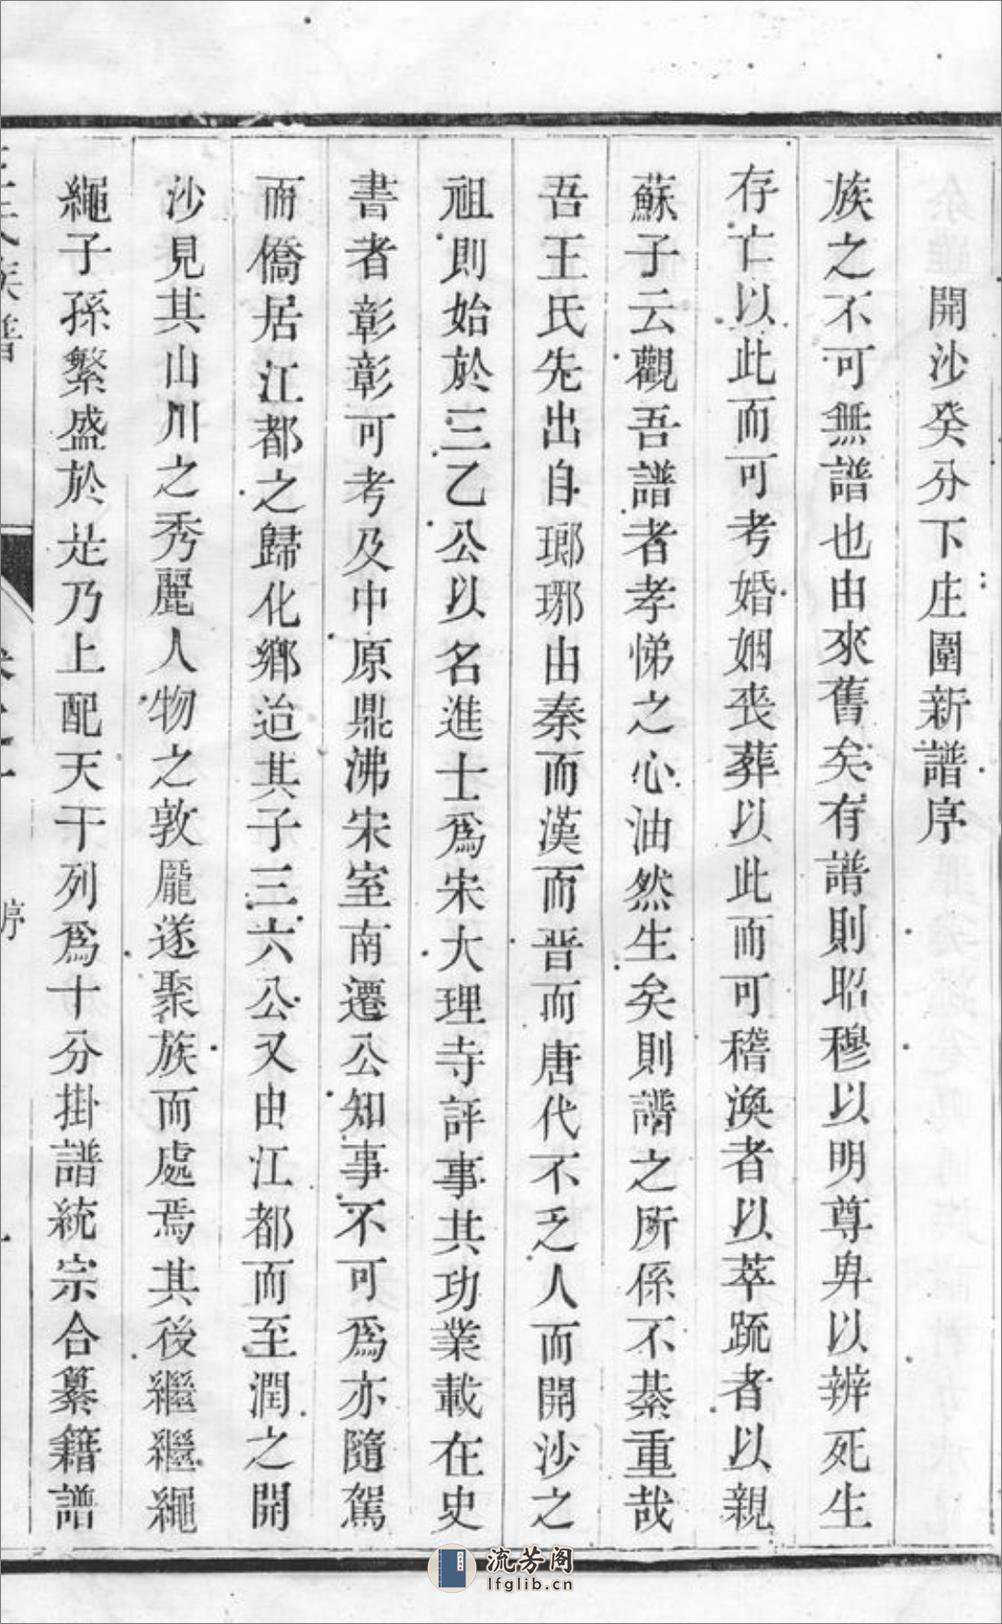 開沙癸分下庄圍新譜序
族之不可無譜也由來舊矣有譜則昭穆以明尊卑以辨死生
存亡以此而可考婚姻喪葬以此而可稽渙者以萃䟽者以親
蘇子云觀吾譜者孝悌之心油然生矣則譜之所係不綦重哉
吾王氏先出自瑯琊由秦而漢而晋而唐代不乏人而開沙之
祖則始於三乙公以名進士爲宋大理寺評事其功業載在史
書者彰彰可考及中原鼎沸宋室南遷公知事不可爲亦隨駕
而僑居江都之歸化鄉迨其子三六公又由江都而至潤之開
沙見其山川之秀麗人物之敦龐遂聚族而處焉其後繼繼繩
繩子孫繁盛於是乃上配天干列爲十分掛譜統宗合纂籍譜
王氏族譜
卷之一
序
一
流芳阁
lfglib.cn